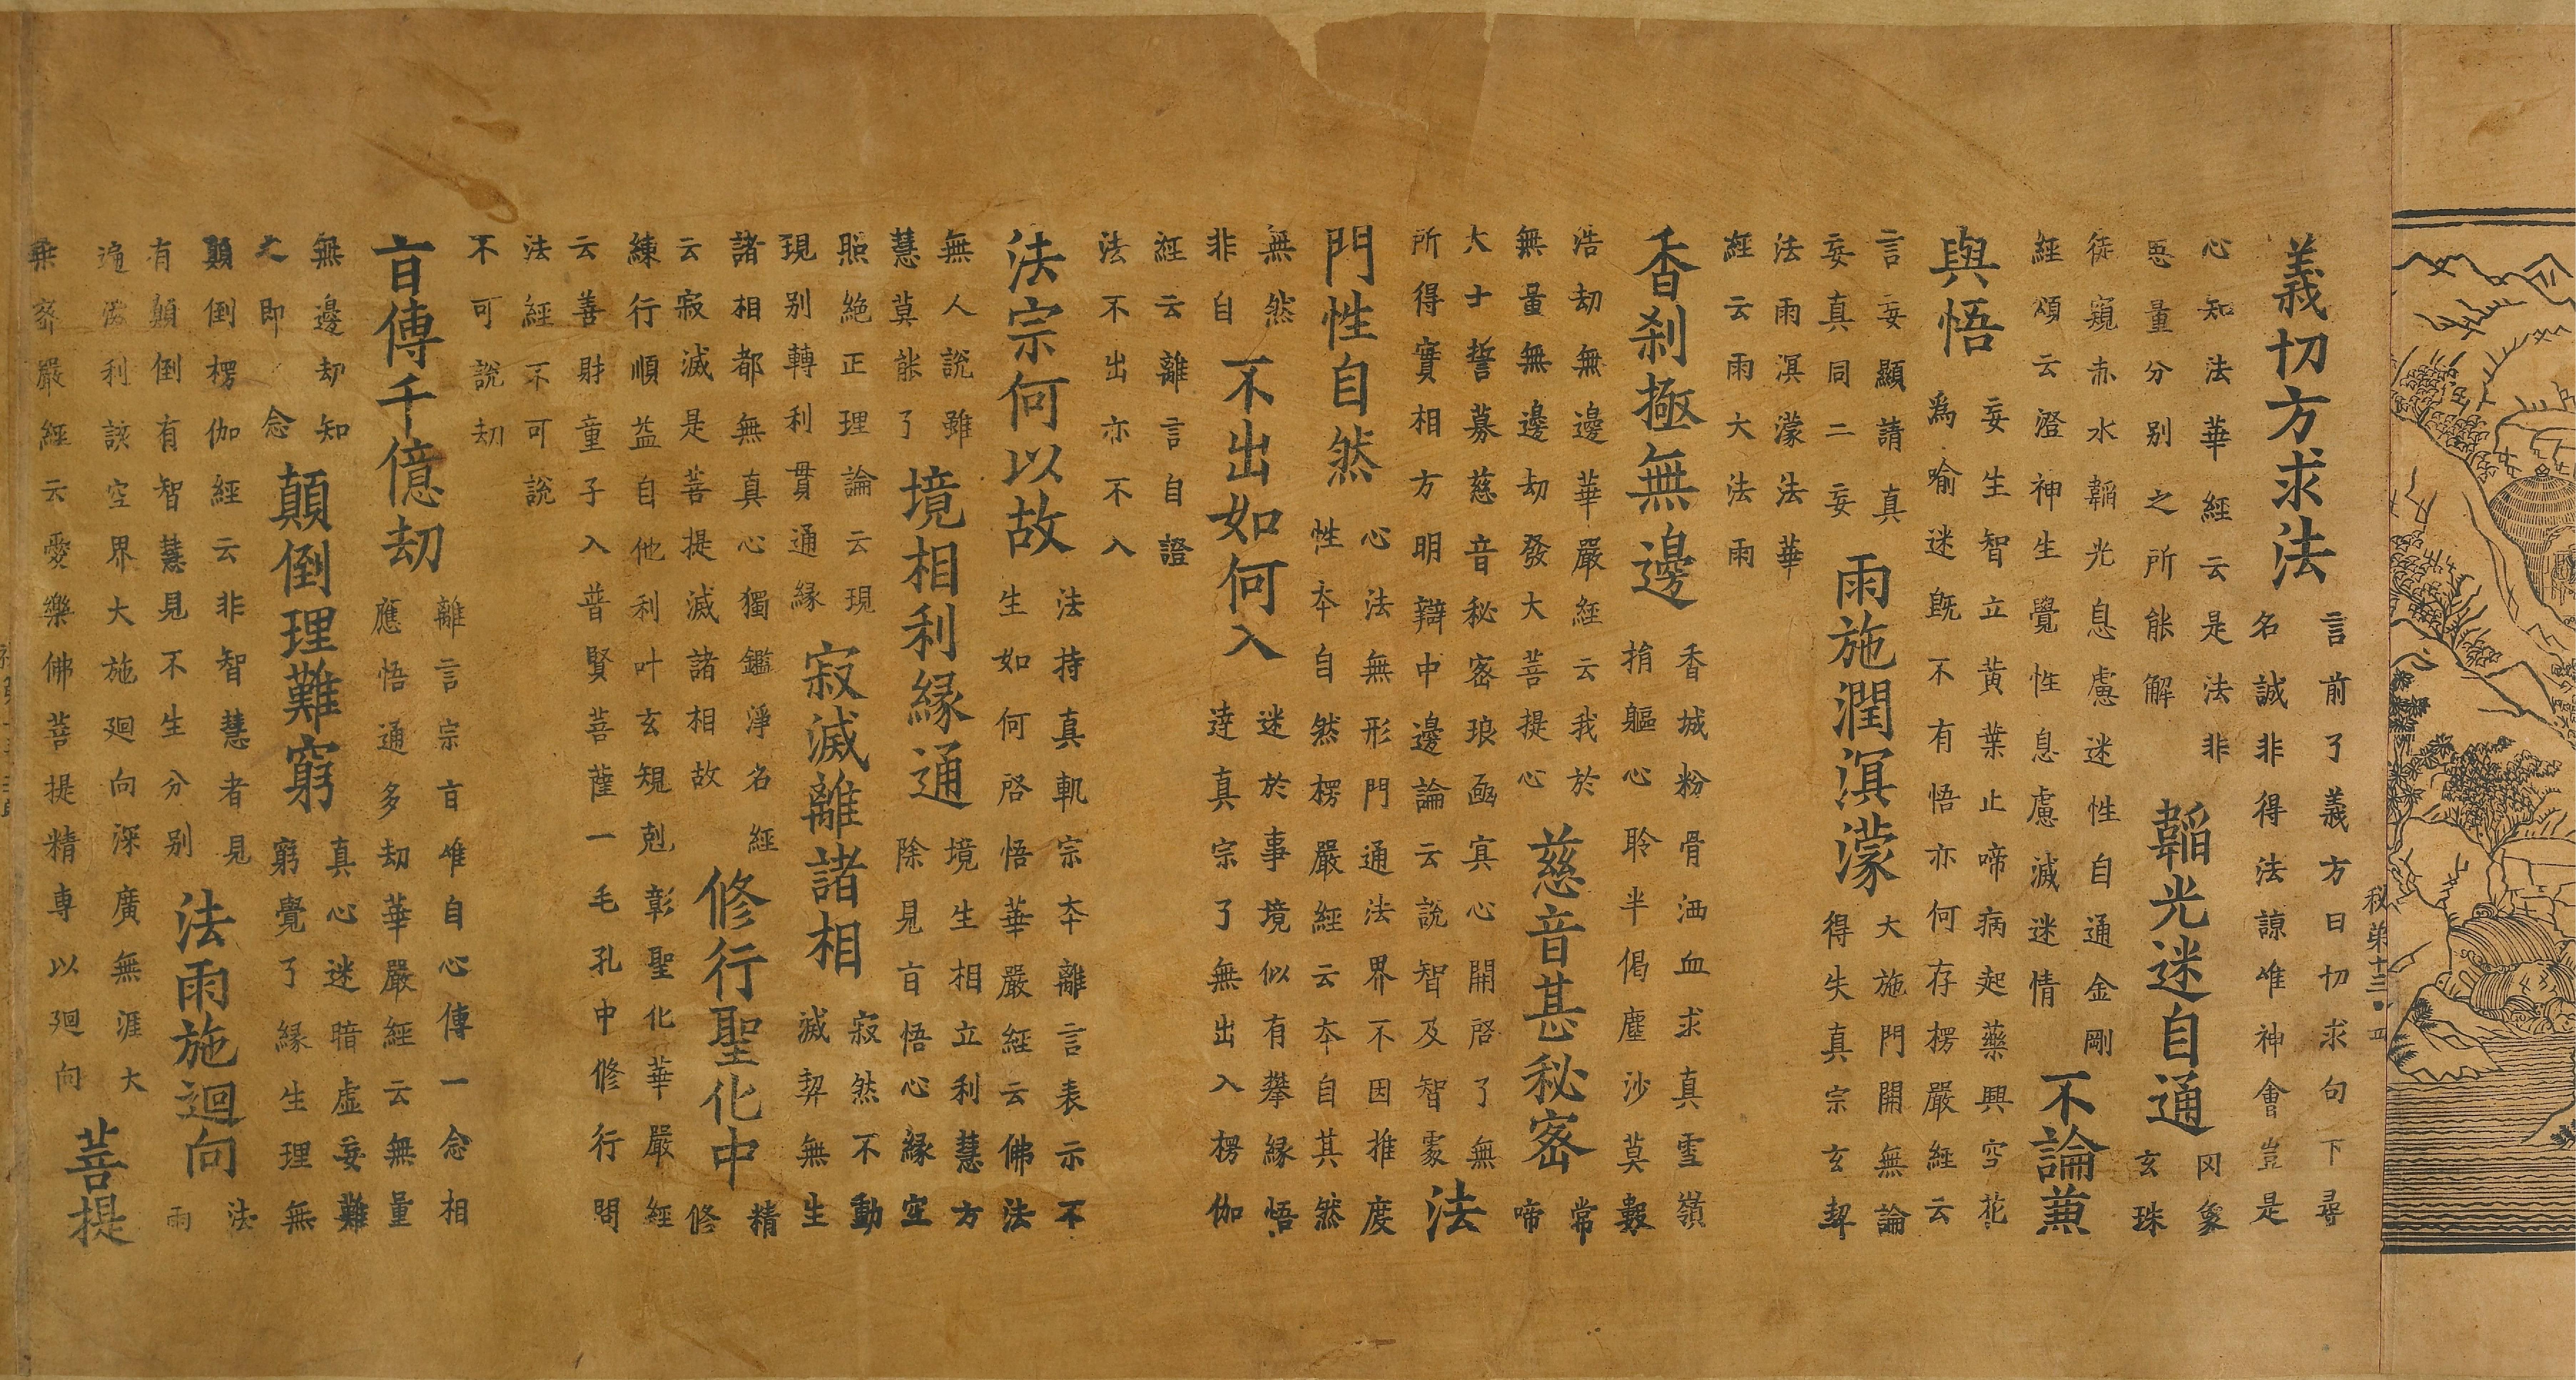 秘第十三 四
義切方求法
言前了義方曰切求句下尋
名誠非得法諒唯神會豈是
心知法華經云是法非
思量分别之所能解
韜光迷自通
罔象
玄珠
徒窺赤水韜光息慮迷性自通金剛
經頌云澄神生覺性息慮滅迷情
不論兼
與悟
妄生智立黃葉止啼病起藥興空花
爲喻迷既不有悟亦何存楞嚴經云
言妄顯請真
妄真同二妄
雨施潤溟濛
大施門開無論
得失真宗玄契
法雨溟濛法華
經云雨大法雨
香刹極無邊
香城粉骨洒血求真雪嶺
捐軀心聆半偈塵沙莫數
浩劫無邊華嚴經云我於
無量無邊劫發大菩提心
慈音甚秘密
常
啼
大士誓募慈音秘密琅函寘心開啓了無
所得實相方明辯中邊論云說智及智處
法
門性自然
心法無形門通法界不因推度
性本自然楞嚴經云本自其然
無然
非自
不出如何入
迷於事境似有攀緣悟
達真宗了無出入楞伽
經云離言自證
法不出亦不入
法宗何以故
法持真軌宗本離言表示不
生如何啓悟華嚴經云佛法
無人說雖
慧莫能了
境相利緣通
境生相立利慧方
除見旨悟心緣空
照絶正理論云現
現别轉利貫通緣
寂滅離諸相
寂然不動
滅契無生
諸相都無真心獨鑑淨名經
云寂滅是菩提滅諸相故
修行聖化中
精
修
練行順益自他利叶玄規剋彰聖化華嚴經
云善財童子入普賢菩薩一毛孔中修行問
法經不可說
不可說劫
旨傳千億劫
離言宗旨唯自心傳一念相
應悟通多劫華嚴經云無量
無邊劫知
之即念
顛倒理難窮
真心迷暗虛妄難
窮覺了緣生理無
顛倒楞伽經云非智慧者見
有顛倒有智慧見不生分别
法雨施迴向
法
雨
遍滋利該空界大施廻向深廣無涯大
乘密嚴經云愛樂佛菩提精専以廻向
菩提